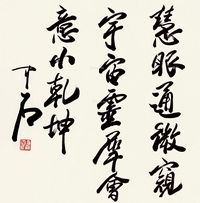 慧眼通微窺
宇宙靈犀會
意小乾坤
于右